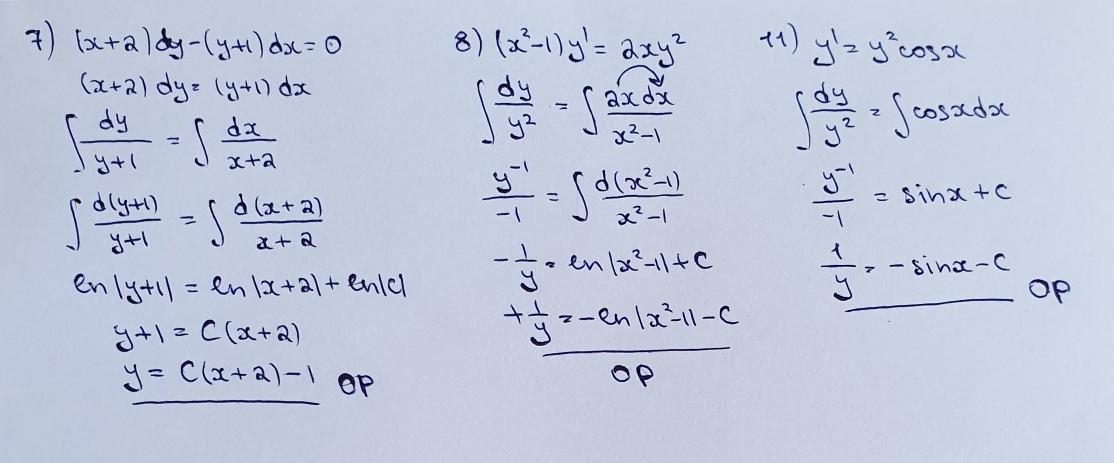 7) (x+2)dy-(y+1)dx=0
(x+2) dy = (y+1) dx
∫ dy/(y+1) = ∫ dx/(x+2)
∫ d(y+1)/(y+1) = ∫ d(x+2)/(x+2)
ln|y+1| = ln|x+2| + ln|c|
y+1 = C(x+2)
y = C(x+2)-1 OP
8) (x²-1)y' = 2xy²
∫ dy/y² = ∫ 2xdx/(x²-1)
y⁻¹/-1 = ∫ d(x²-1)/(x²-1)
-1/y = ln|x²-1|+C
+1/y = -ln|x²-1|-C
OP
11) y' = y²cosx
∫ dy/y² = ∫cosxdx
y⁻¹/-1 = sinx+C
1/y = -sinx-C OP